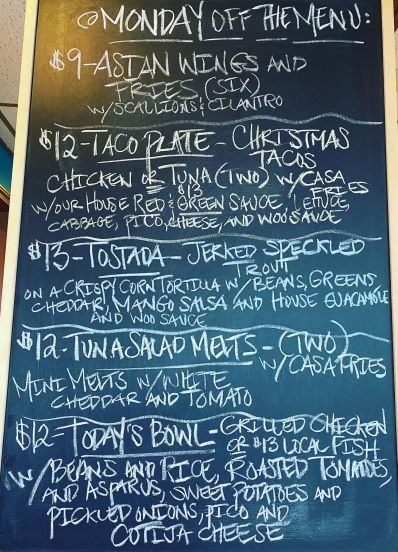 @MONDAY OFF THE MENU:
$9-ASIAN WINGS AND
FRIES (SIX)
W/SCALLIONS & CILANTRO
$12-TACO PLATE - CHRISTMAS
TACOS
CHICKEN OR TUNA (TWO) W/CASA
$13 FRIES
W/OUR HOUSE RED & GREEN SAUCE, LETTUCE,
CABBAGE, PICO, CHEESE, AND WOO SAUCE
$13-TOSTADA - JERKED SPECKLED
TROUT
ON A CRISPY CORN TORTILLA W/ BEANS, GREENS
CHEDDAR, MANGO SALSA AND HOUSE GUACAMOLE
AND WOO SAUCE
$12-TUNA SALAD MELTS - (TWO)
W/CASA FRIES
MINI MELTS W/WHITE
CHEDDAR AND TOMATO
$12-TODAY'S BOWL - GRILLED CHICKEN
OR $13 LOCAL FISH
W/BEANS AND RICE, ROASTED TOMATOES,
AND ASPARUS, SWEET POTATOES AND
PICKLED ONIONS, PICO AND
COTIJA CHEESE